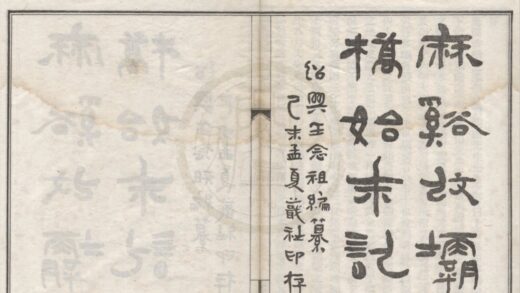 麻谿改壩
橋始末記
紹興王念祖編纂
己未孟夏蕺社印存